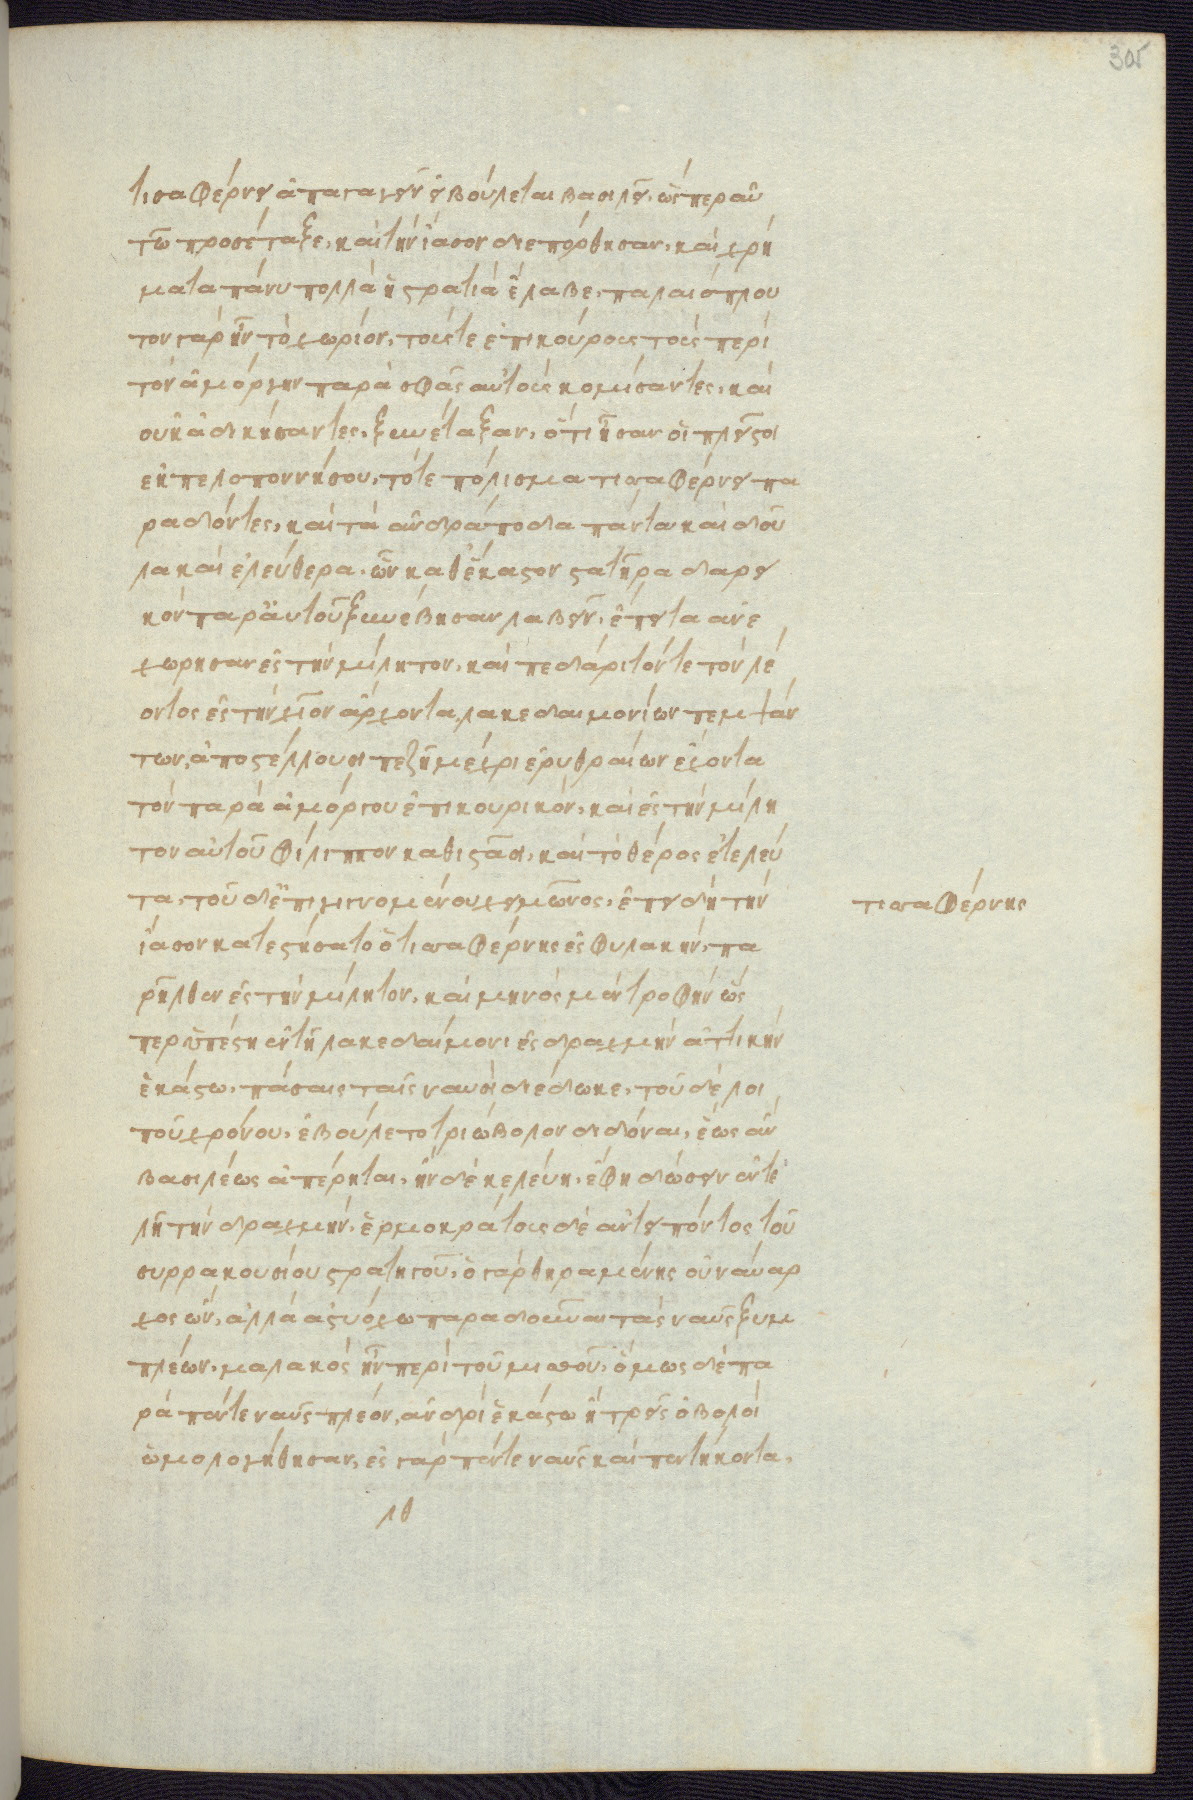 305
τισαφέρνει ἀπαγαγεῖν εἰ βούλεται βασιλεῖ, ὥσπερ αὐ
τῶ προσέταξε, καὶ τὴν ἴασον διεπόρθησαν, καὶ χρή
ματα πάνυ πολλὰ ἡ στρατιὰ ἔλαβε, παλαιόπλου
τον γὰρ ἦν τὸ χωρίον, τούς τε ἐπικούρους τοὺς περὶ
τὸν ἀμόργην παρὰ σφᾶς αὐτοὺς κομίσαντες, καὶ
οὐκ ἀδικήσαντες, ξυνέταξαν, ὅτι ἦσαν οἱ πλεῖστοι
ἐκ πελοποννήσου, τό τε πόλισμα τισσαφέρνει πα
ραδόντες, καὶ τὰ ἀνδράποδα πάντα καὶ δοῦ
λα καὶ ἐλεύθερα, ὧν καθ' ἕκαστον στατῆρα δαρει
κὸν παρ' αὐτοῦ ξυνέβησαν λαβεῖν, ἔπειτα ἀνε
χώρησαν ἐς τὴν μίλητον, καὶ πεδάριτόν τε τὸν λέ
οντος ἐς τὴν χῖον ἄρχοντα λακεδαιμονίων πεμψάν
των, ἀποστέλλουσι πεζῆ μέχρι ἐρυθραίων ἔχοντα
τὸν παρὰ ἀμόργου ἐπικουρικόν, καὶ ἐς τὴν μίλη
τον αὐτοῦ φίλιππον καθιστᾶσι, καὶ τὸ θέρος ἐτελεύ
τα, τοῦ δ' ἐπιγιγνομένου χειμῶνος, ἐπειδὴ τὴν
τισσαφέρνης
ἴασον κατεστήσατο ὁ τισσαφέρνης ἐς φυλακήν, πα
ρῆλθεν ἐς τὴν μίλητον, καὶ μηνὸς μὲν τροφὴν ὥς
περ ὑπέστη ἐν τῆ λακεδαίμονι ἐς δραχμὴν ἀττικὴν
ἑκάστω, πάσαις ταῖς ναυσὶ διέδωκε, τοῦ δὲ λοι
ποῦ χρόνου, ἐβούλετο τριώβολον διδόναι, ἕως ἂν
βασιλέως ἀπέρηται, ἢν δὲ κελεύη, ἔφη δώσειν ἐντε
λῆ τὴν δραχμήν, ἑρμοκράτους δὲ ἀντειπόντος τοῦ
συρρακουσίου στρατηγοῦ, ὁ γὰρ θηραμένης οὐ ναύαρ
χος ὤν, ἀλλὰ ἀστυόχω παραδοῦναι τὰς ναῦς ξυμ
πλέων, μαλακὸς ἦν περὶ τοῦ μισθοῦ, ὅμως δὲ πα
ρὰ πέντε ναῦς πλέον, ἀνδρὶ ἑκάστω ἢ τρεῖς ὀβολοὶ
ὡμολογήθησαν, ἐς γὰρ πέντε ναῦς καὶ πεντήκοντα,
λθ